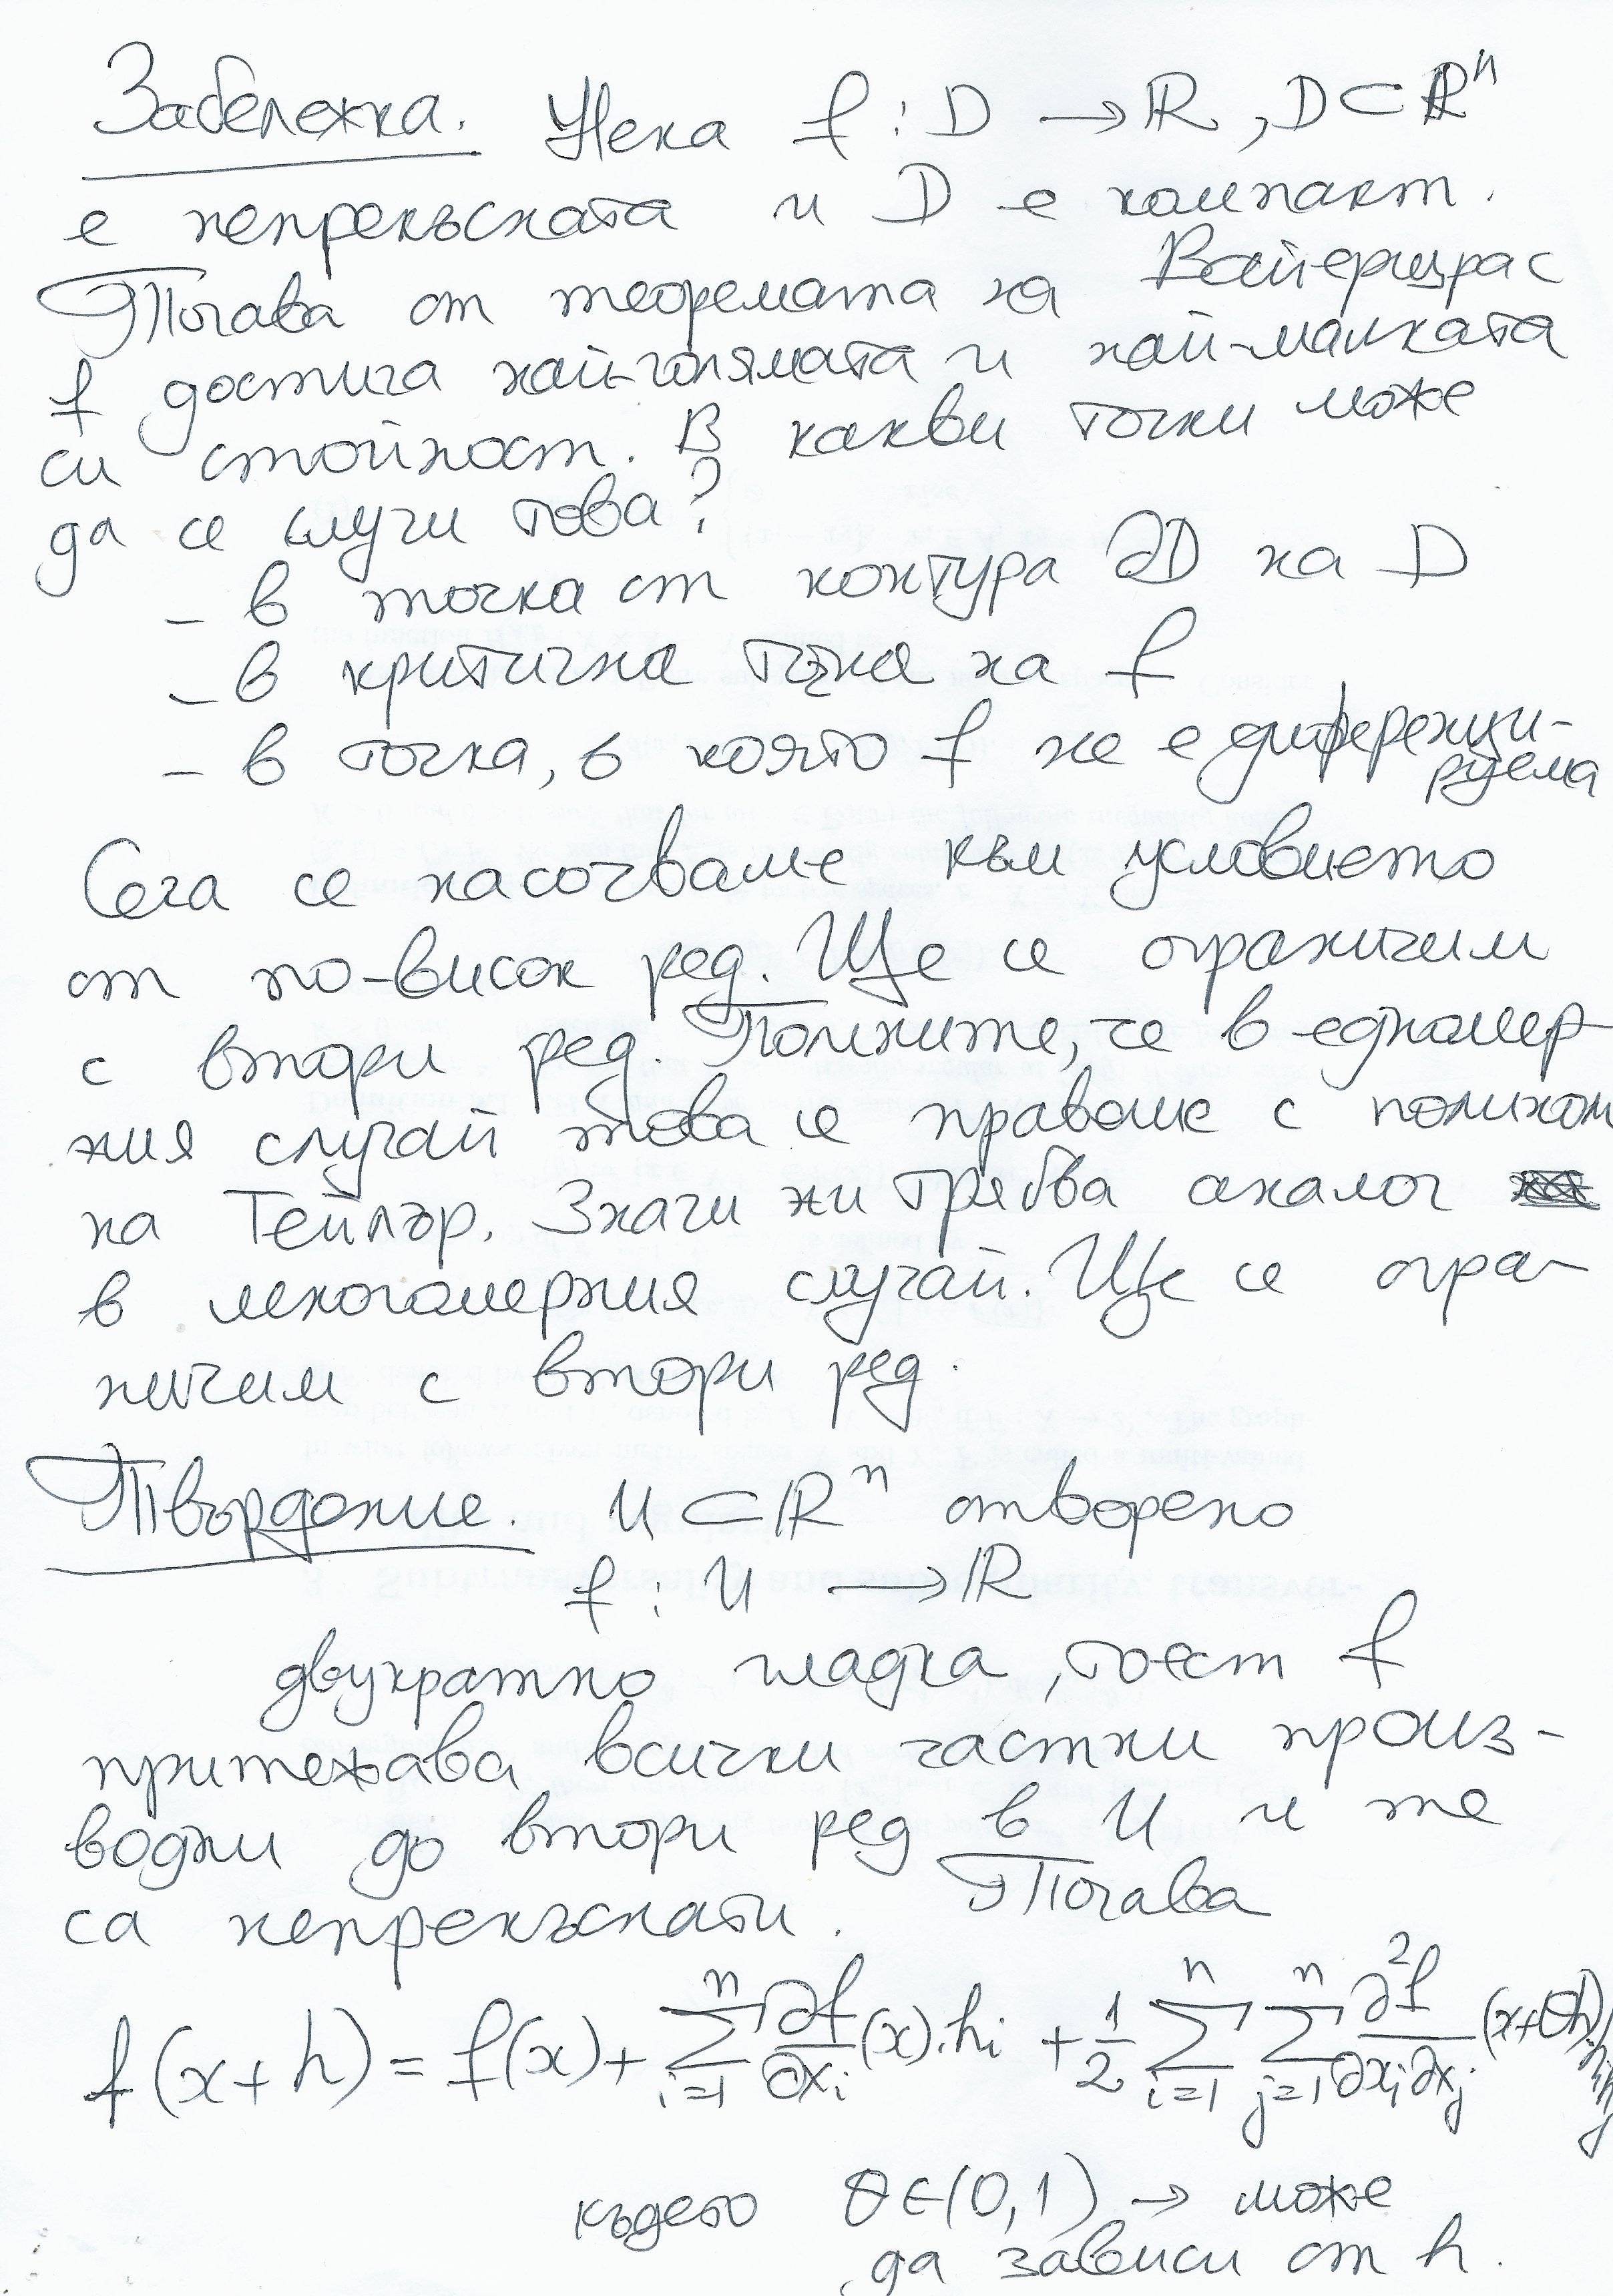 Забележка. Нека f : D → ℝ, D ⊂ ℝⁿ
е непрекъсната и D е компакт.
Тогава от теоремата на Вайерщрас
f достига най-голямата и най-малката
си стойност. В какви точки може
да се случи това?
– в точка от контура ∂D на D
– в критична точка на f
– в точка, в която f не е диференци-
руема
Сега се насочваме към условието
от по-висок ред. Ще се ограничим
с втори ред. Помните, че в едномер-
ния случай това се правеше с полином
на Тейлър. Значи ни трябва аналог
в многомерния случай. Ще се огра-
ничим с втори ред.
Твърдение. U ⊂ ℝⁿ отворено
f : U → ℝ
двукратно гладка, тоест f
притежава всички частни произ-
водни до втори ред в U и те
са непрекъснати. Тогава
f(x+h) = f(x) + ∑_{i=1}^{n} ∂f/∂x_i (x).h_i + 1/2 ∑_{i=1}^{n} ∑_{j=1}^{n} ∂²f/∂x_i∂x_j (x+θh).h_i h_j
където θ ∈ (0,1) → може
да зависи от h.